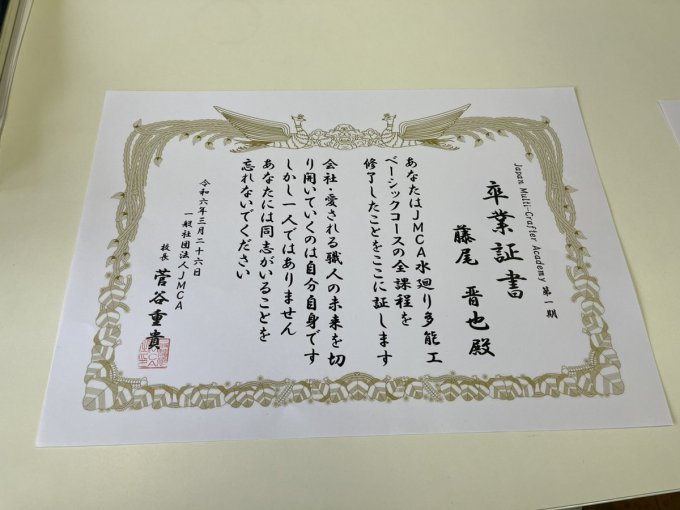 Japan Multi-Crafter Academy 第一期
卒業証書
藤尾 晋也 殿
あなたはJMCA水廻り多能工
ベーシックコースの全課程を
修了したことをここに証します
会社・愛される職人の未来を切
り開いていくのは自分自身です
しかし一人ではありません
あなたには同志がいることを
忘れないでください
令和六年三月二十六日
一般社団法人JMCA
校長 菅谷重貴